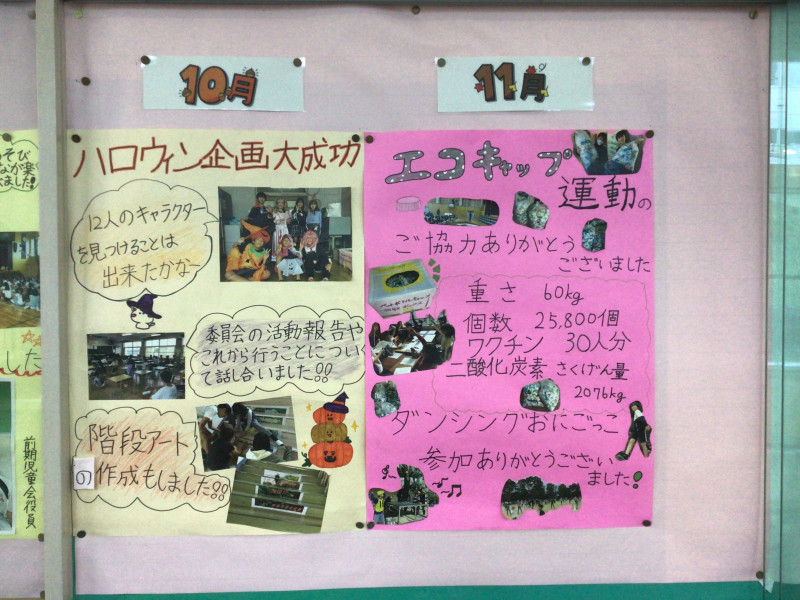 10月
ハロウィン企画大成功
12人のキャラクター
を見つけることは
出来たかな〜
委員会の活動報告や
これから行うことについ
て話し合いました!!
階段アート
の作成もしました!!
11月
エコキャップ
運動の
ご協力ありがとう
ございました
重さ 60kg
個数 25,800個
ワクチン 30人分
二酸化炭素 さくげん量
2076kg
ダンシングおにごっこ
参加ありがとうござい
ました!
前期児童会役員